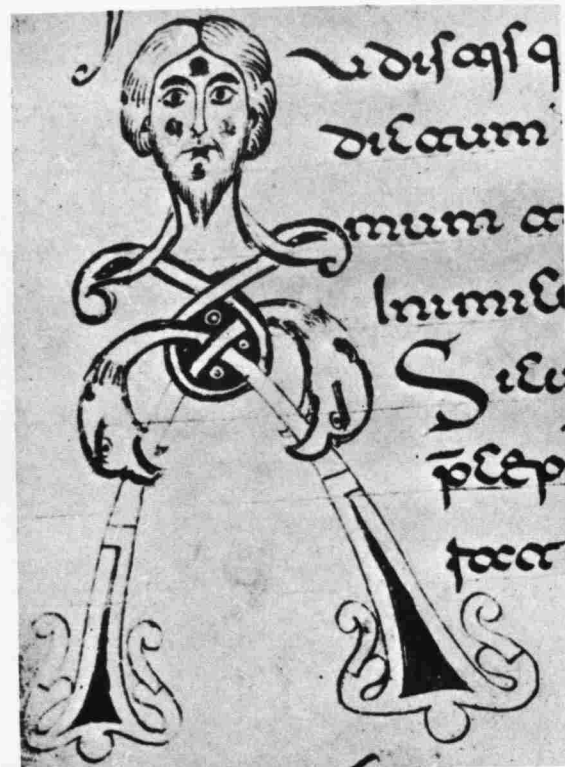 udistis q
dictum
mum t
Inimic
Sicu
p̄cep